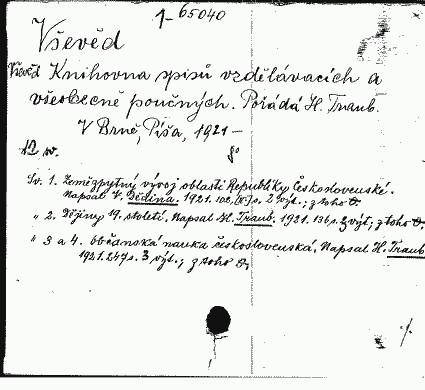 1-65040
Vševěd
Vševěd Knihovna spisů vzdělávacích a
všeobecně poučných. Pořádá H. Traub.
V Brně, Píša, 1921-
sv. 8°
Sv. 1. Zeměpytný vývoj oblasti Republiky Československé.
Napsal V. Dědina. 1921. 102, s. 2 výt.; z toho
" 2. Dějiny 19. století. Napsal H. Traub. 1921. 136 s. 3 výt; z toho
" 3 a 4. Občanská nauka československá. Napsal H. Traub
1921. 247 s. 3 výt.; z toho